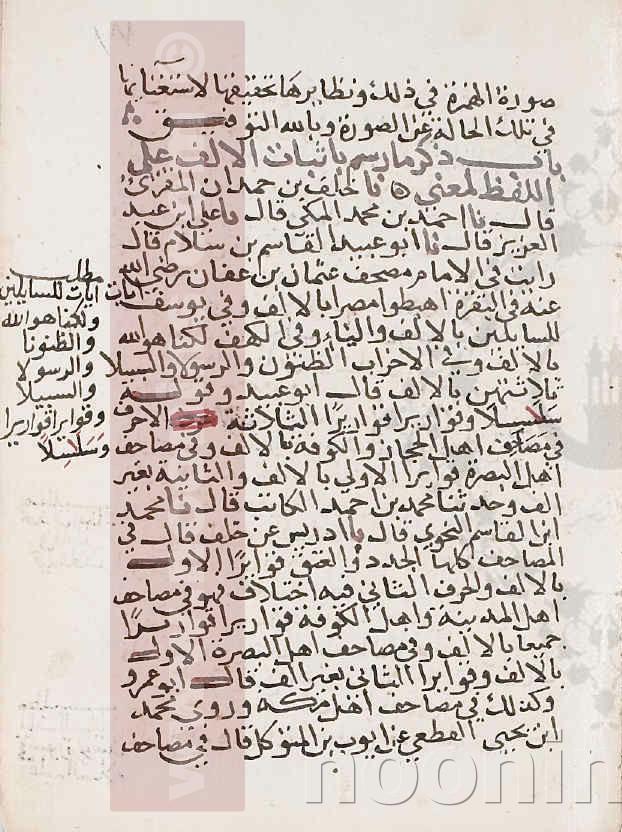 صورة الهمزة في ذلك ونظايرها تحقيقها لاستغنائها
في تلك الحالة عن الصورة وبالله التوفيق
باب ذكر ما رسم باثبات الالف على
اللفظ لمعنى نا خلف بن حمدان المقرئ
قال نا احمد بن محمد المكي قال نا علي ابن عبد
العزيز قال نا ابو عبيد القاسم بن سلام قال
رايت في الامام مصحف عثمان بن عفان رضي الله
عنه في البقرة اهبطوا مصرا بالالف وفي يوسف ايات
للسايلين بالالف والتاء وفي الكهف لكنا هو الله
بالالف وفي الاحزاب الظنون والرسولا والسبيلا
ثلاثتهن بالالف قال ابو عبيد وقوله
سلسلا وقواريرا قواريرا الثلاثة الاحرف
في مصاحف اهل الحجاز والكوفة بالالف وفي مصاحف
اهل البصرة قواريرا الاولى بالالف والثانية بغير
الف وحدثنا محمد بن احمد الكاتب قال نا محمد
ابن القاسم النحوي قال نا ادريس عن خلف قال في
المصاحف كلها الجدد والعتق قواريرا الاول
بالالف والحرف الثاني فيه اختلاف فهو في مصاحف
اهل المدينة واهل الكوفة قواريرا قواريرا
جميعا بالالف وفي مصاحف اهل البصرة الاول
بالالف وقواريرا الثاني بغير الف قال ابو عمرو
وكذلك في مصاحف اهل مكة وروى محمد
ابن يحيى القطعي عن ايوب بن المتوكل قال في مصاحف
مطلب
ايات للسايلين
ولكنا هو الله
والظنونا
والرسولا
والسبيلا
وقواريرا قواريرا
وسلسلا
noonin